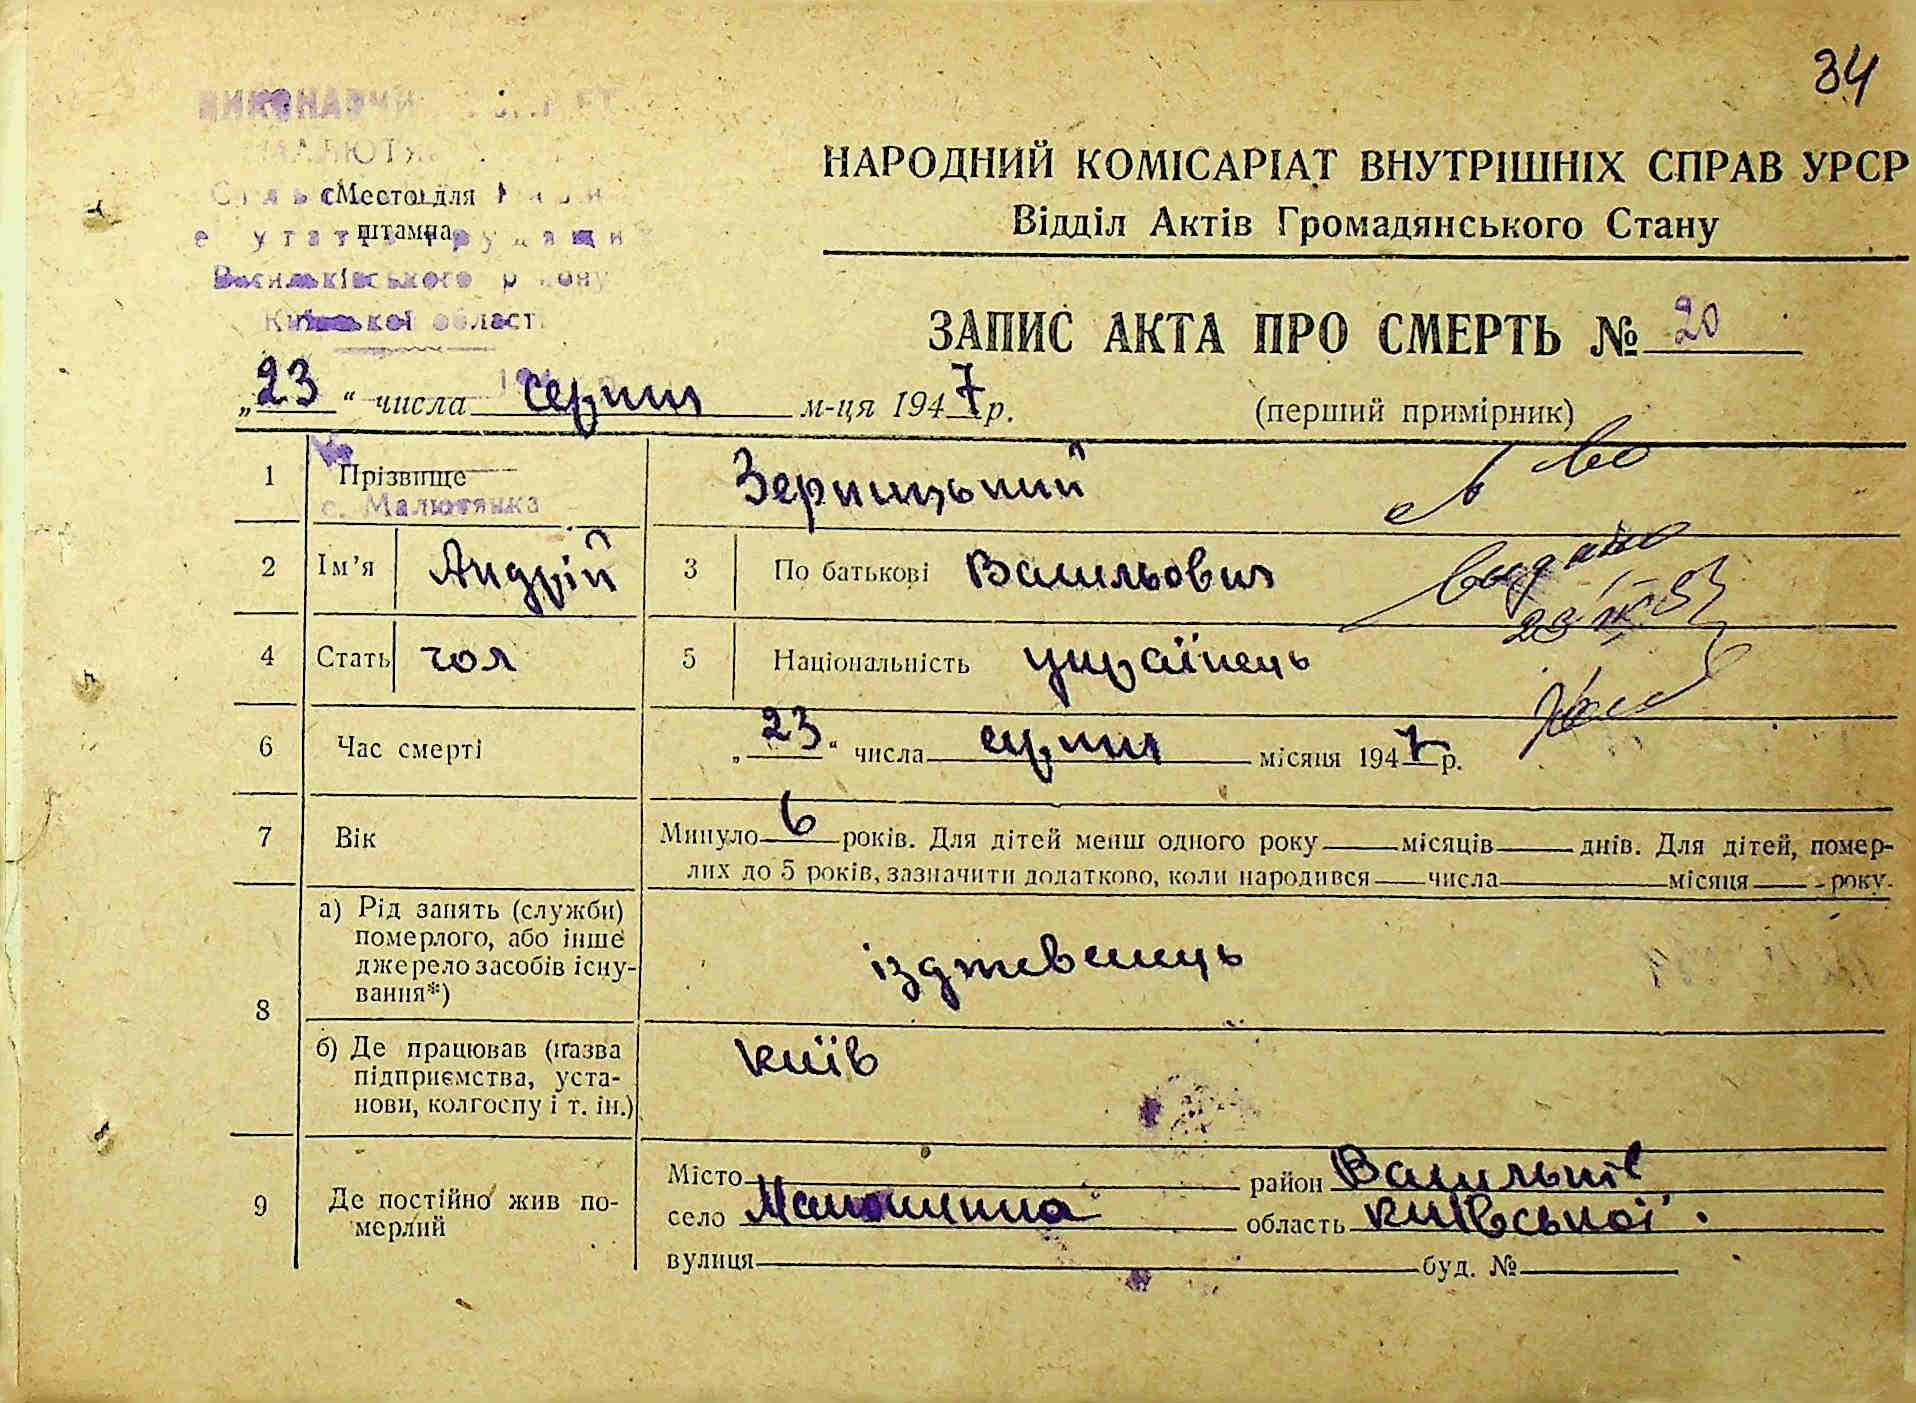 34
МАЛЮТЯ
Место для
штампа
Васильківського району
Київської област
НАРОДНИЙ КОМІСАРІАТ ВНУТРІШНІХ СПРАВ УРСР
Відділ Актів Громадянського Стану
ЗАПИС АКТА ПРО СМЕРТЬ № 20
„23“ числа серпня м-ця 1947 р.
(перший примірник)
1 Прізвище Зерницький
с. Малютянка
2 Ім’я Андрій 3 По батькові Васильович
видано
4 Стать чол 5 Національність українець
6 Час смерті „23“ числа серпня місяця 1947 р.
7 Вік Минуло 6 років. Для дітей менш одного року місяців днів. Для дітей, помер-
лих до 5 років, зазначити додатково, коли народився числа місяця року.
8 а) Рід занять (служби)
померлого, або інше
джерело засобів існу-
вання*)
іздževенець
б) Де працював (назва
підприємства, уста-
нови, колгоспу і т. ін.)
київ
9 Де постійно жив по-
мерлий
Місто район Васильків
село Малютинка область київської.
вулиця буд. №